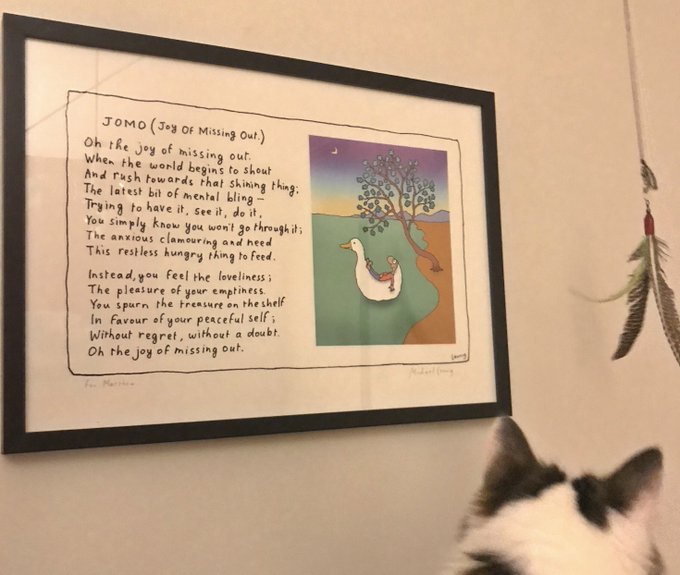 JOMO (Joy Of Missing Out.)
Oh the joy of missing out.
When the world begins to shout
And rush towards that shining thing;
The latest bit of mental bling –
Trying to have it, see it, do it,
You simply know you won't go through it;
The anxious clamouring and need
This restless hungry thing to feed.
Instead, you feel the loveliness;
The pleasure of your emptiness.
You spurn the treasure on the shelf
In favour of your peaceful self;
Without regret, without a doubt.
Oh the joy of missing out.
Leunig
For
Michael Leunig